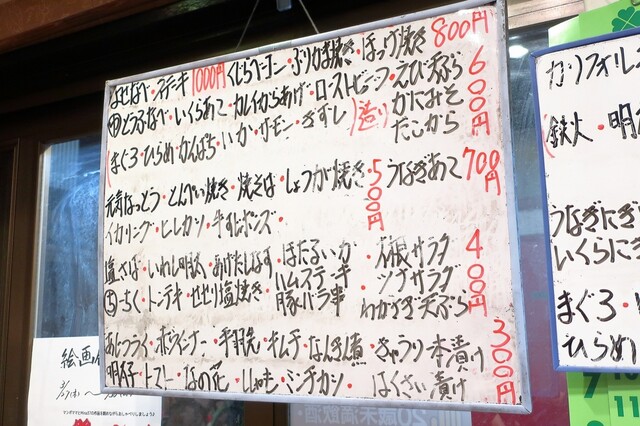 よせなべ・ステーキ 1000円 くじらベーコン・ぶりかま焼き・ほっけ焼き 800円
肉どうふなべ・いくらあて・カレイからあげ・ローストビーフ・えび天ぷら 600円
(まぐろ・ひらめ・かんぱち・いか・サーモン・きずし)造り かにみそ
たこから
元気なっとう・とんぺい焼き・焼そば・しょうが焼き・500円 うなぎあて 700円
イカリング・ヒレカツ・牛すじポンズ・
塩さば・いわし明太・あげだしなす・ほたるいか・大根サラダ 400円
ち〜ちく・トンテキ・せせり塩焼き・ハムステーキ ツナサラダ
豚バラ串 わかさぎ天ぷら
あじフライ・赤ウインナー・手羽先・キムチ・なんきん煮・きゅうり一本漬け 300円
明太子・トマト・なの花・ししゃも・メンチカツ・はくさい漬け
カリフォル
鉄火・明
うなぎにぎ
いくらにき
まぐろ・
ひらめ
絵画